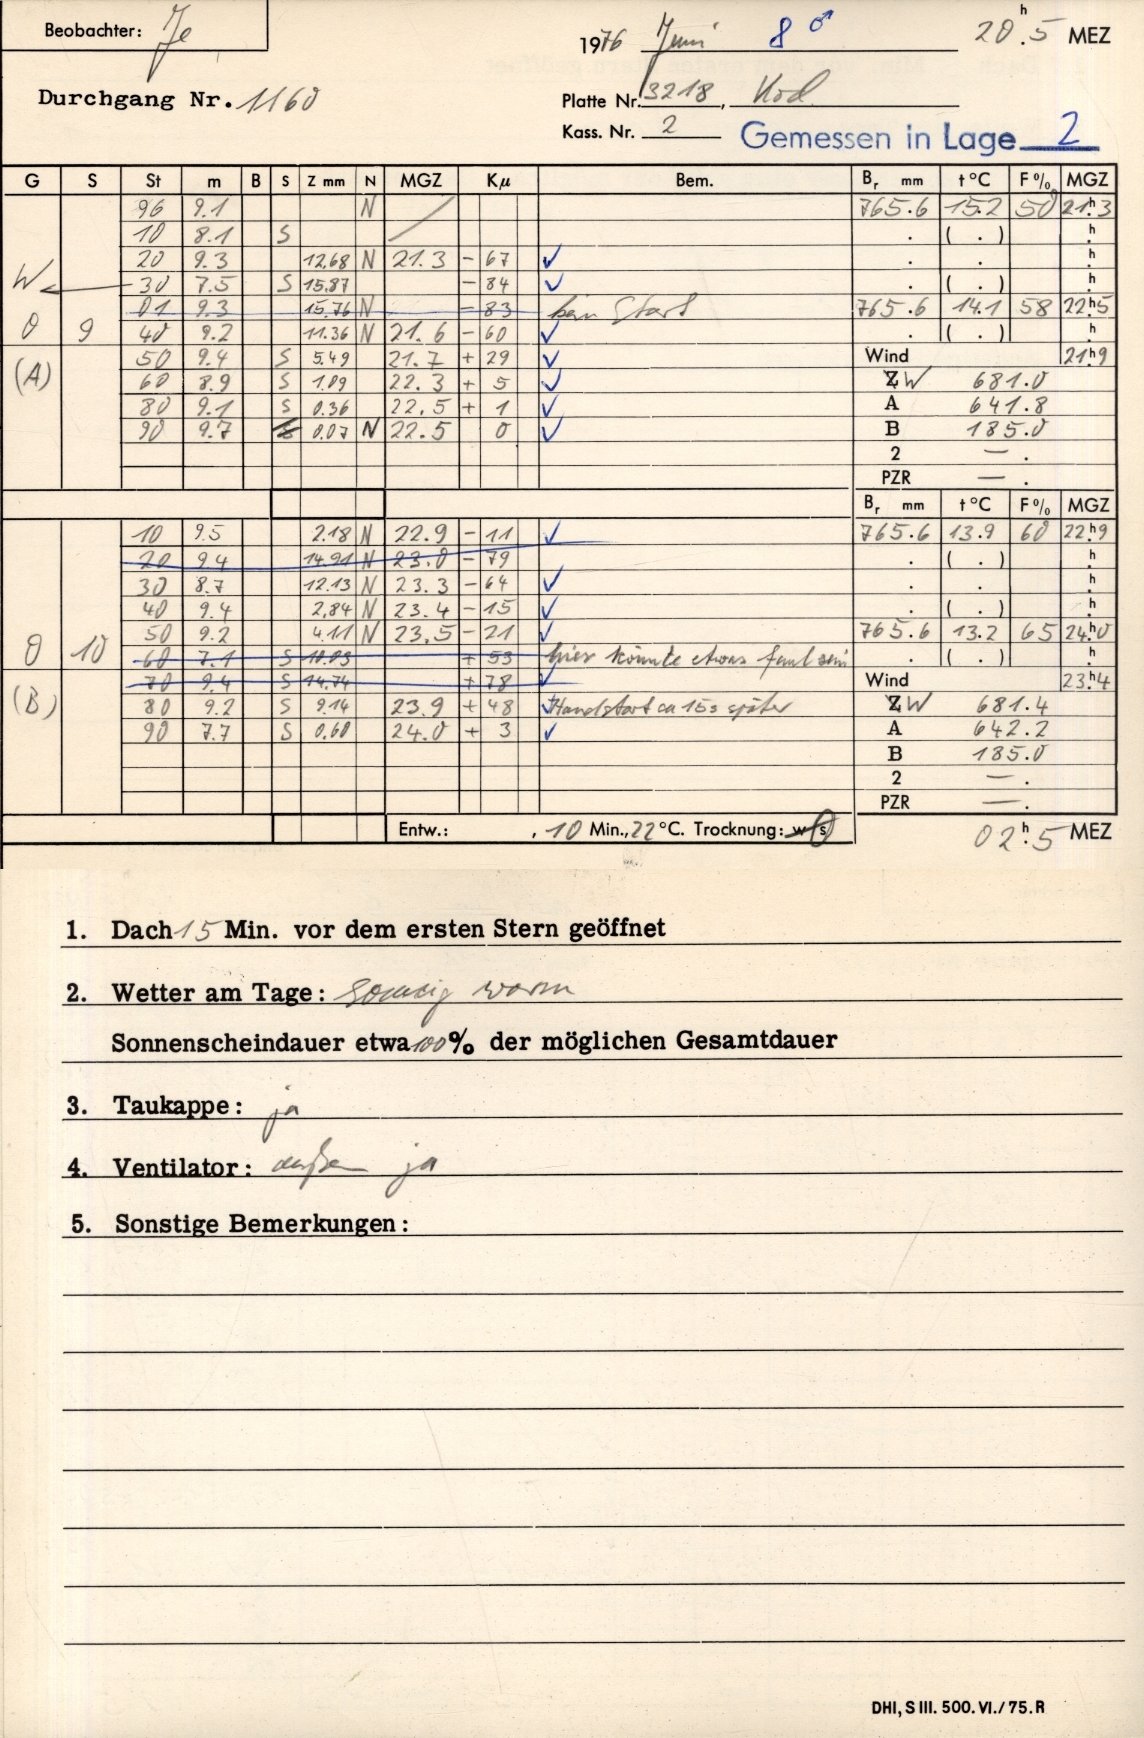 Beobachter: Je
1976 Juni 8 ♂ 20h.5 MEZ
Durchgang Nr. 1160
Platte Nr. 3218, Kod
Kass. Nr. 2 Gemessen in Lage 2
G S St m B S Z mm N MGZ Kμ Bem. Br mm t°C F% MGZ
96 9.1 N 765.6 15.2 50 21h.3
10 8.1 S . ( . ) h.
20 9.3 12.68 N 21.3 - 67 ✓ . . h.
W 30 7.5 S 15.87 - 84 ✓ . ( . ) h.
01 9.3 15.76 N - 83 kein Start 765.6 14.1 58 22h5
0 9 40 9.2 11.36 N 21.6 - 60 ✓ . ( . ) h.
(A) 50 9.4 S 5.49 21.7 + 29 ✓ Wind 21h9
60 8.9 S 1.09 22.3 + 5 ✓ Z W 681.0
80 9.1 S 0.36 22.5 + 1 ✓ A 641.8
90 9.7 S 0.07 N 22.5 0 ✓ B 185.0
2 — .
PZR — .
Br mm t°C F% MGZ
10 9.5 2.18 N 22.9 - 11 ✓ 765.6 13.9 60 22h.9
20 9.4 14.91 N 23.0 - 79 . ( . ) h.
30 8.7 12.13 N 23.3 - 64 ✓ . . h.
40 9.4 2.84 N 23.4 - 15 ✓ . ( . ) h.
0 10 50 9.2 4.11 N 23.5 - 21 ✓ 765.6 13.2 65 24h.0
60 7.1 S 10.03 + 53 hier könnte etwas faul sein . ( . ) h.
(B) 70 9.4 S 14.74 + 78 ✓ Wind 23h.4
80 9.2 S 9.14 23.9 + 48 ✓ Handstart ca 15s später Z W 681.4
90 7.7 S 0.60 24.0 + 3 ✓ A 642.2
B 185.0
2 — .
PZR — .
Entw.: , 10 Min., 22°C. Trocknung: w s 02h.5 MEZ
1. Dach 15 Min. vor dem ersten Stern geöffnet
2. Wetter am Tage: sonnig warm
Sonnenscheindauer etwa 100% der möglichen Gesamtdauer
3. Taukappe: ja
4. Ventilator: außen ja
5. Sonstige Bemerkungen:
DHI, S III. 500. VI./75. R